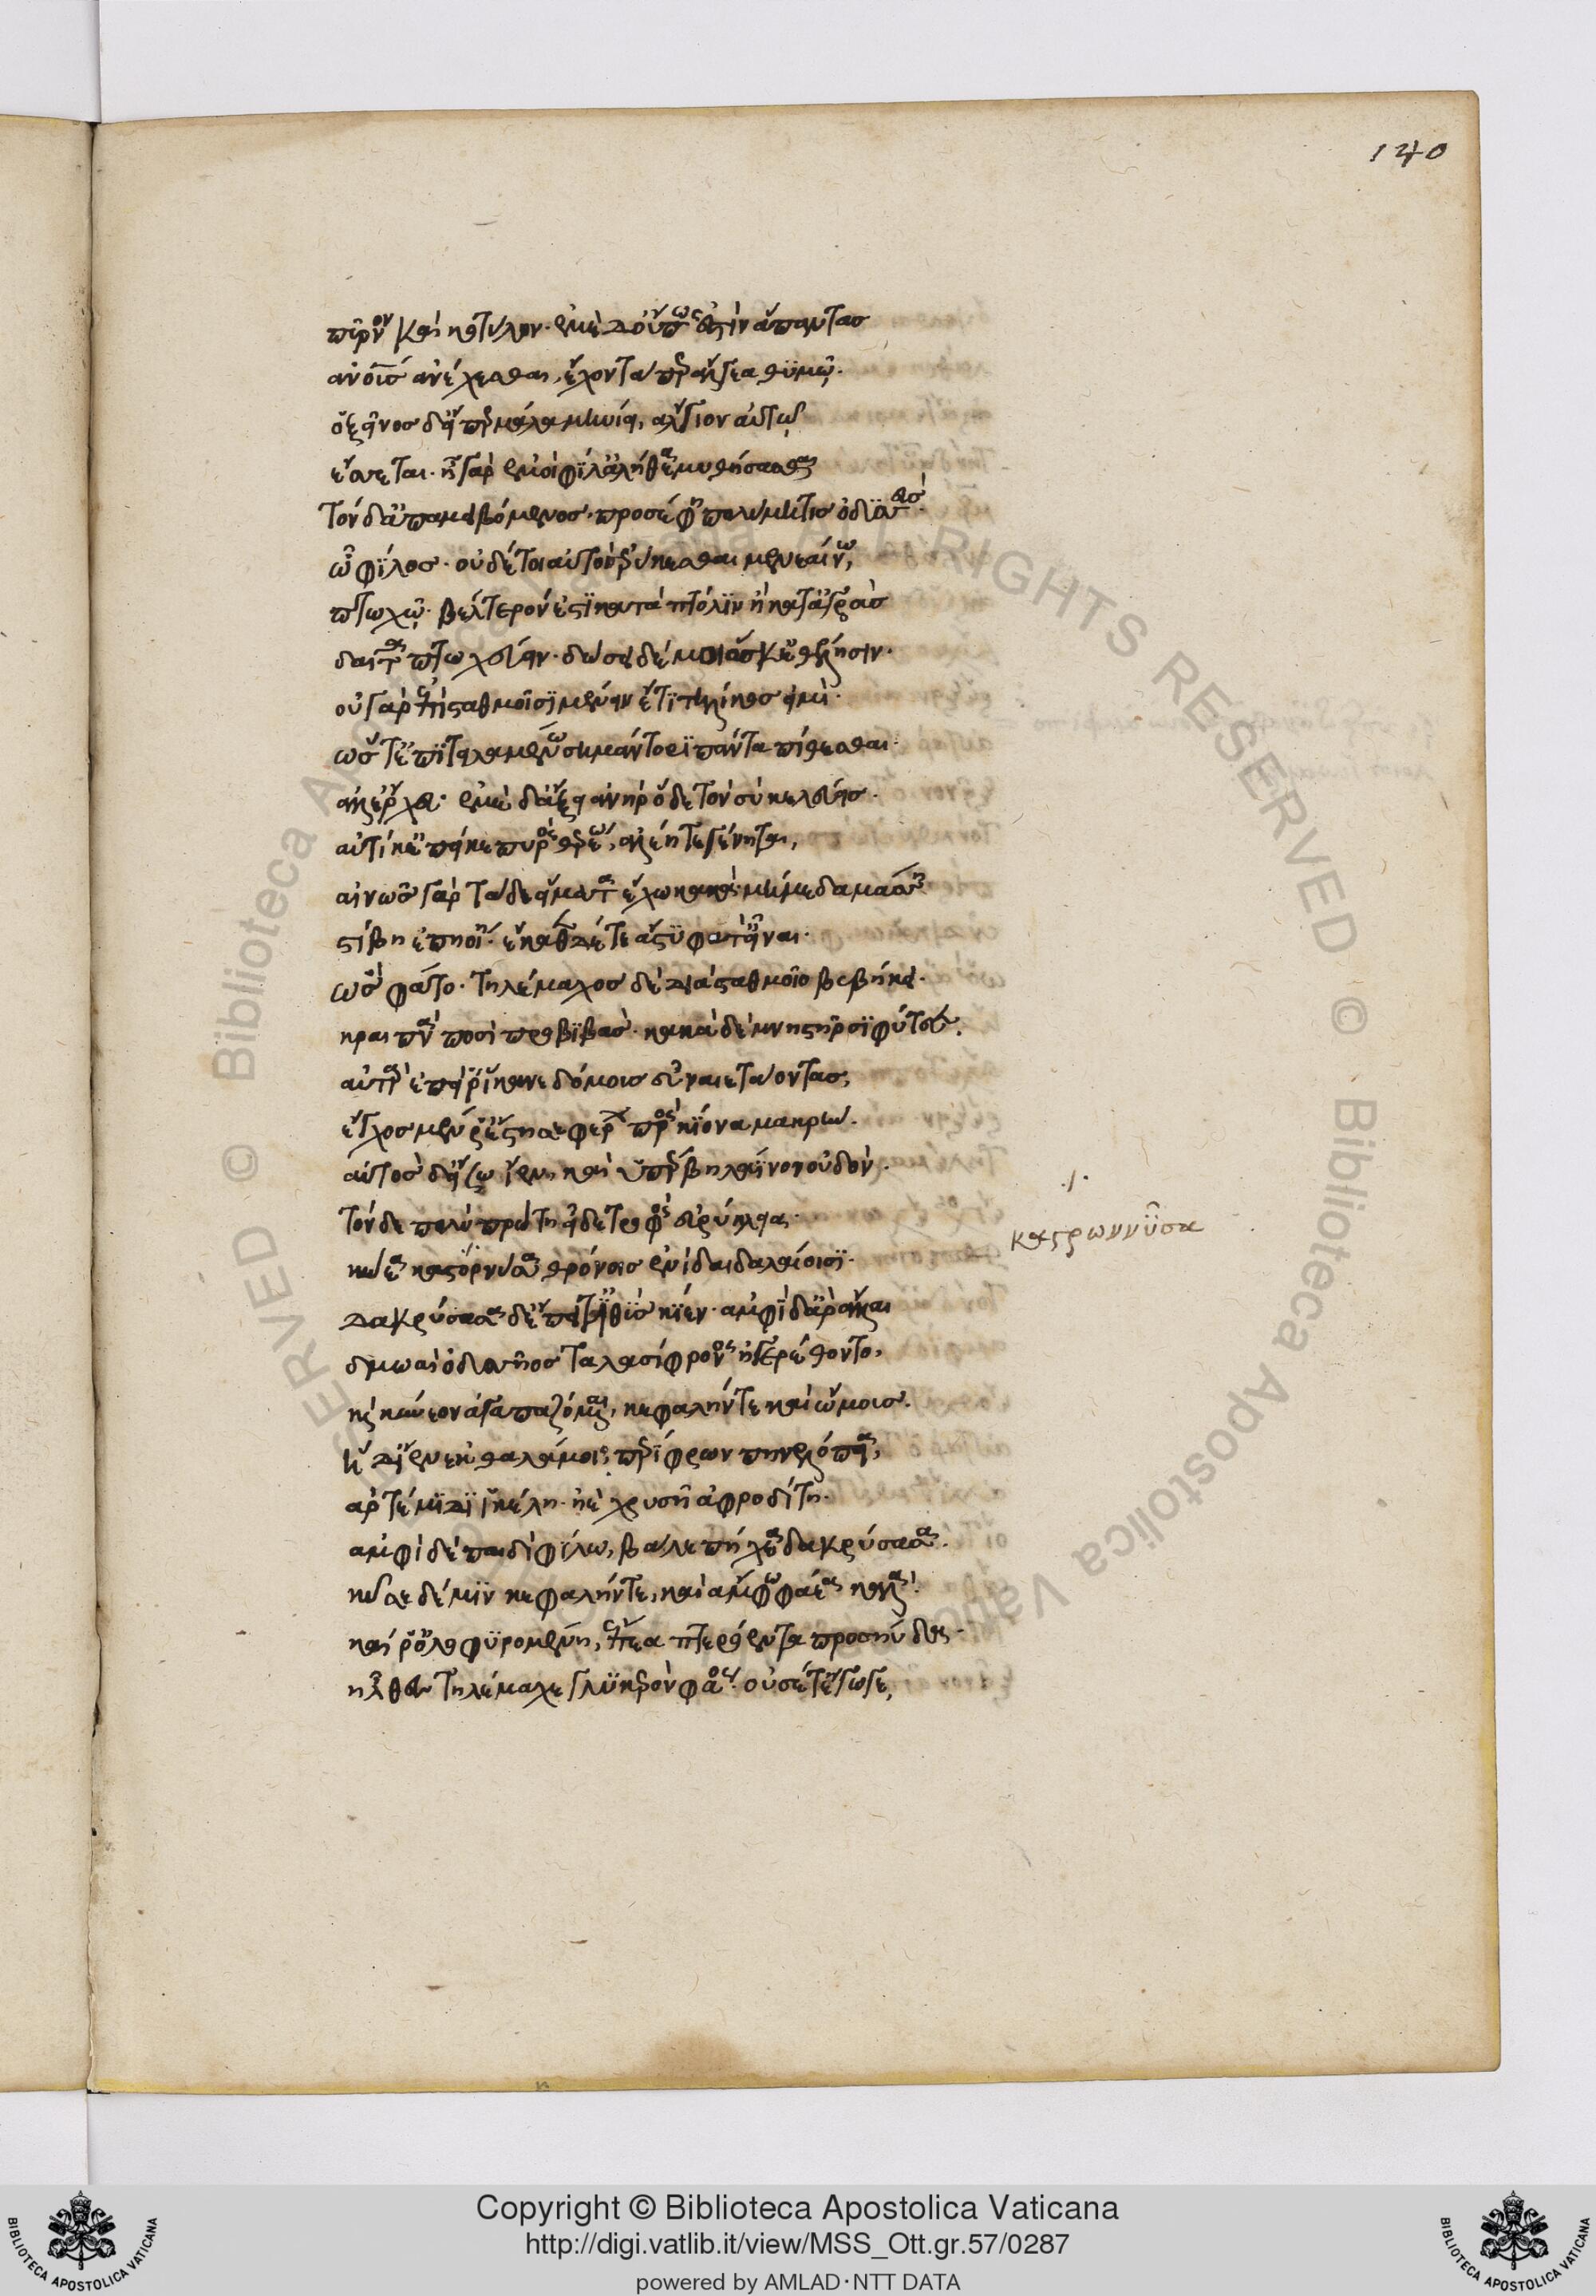 140
πύρνον καὶ κοτύλην· ἐμὲ δ' οὔπως ἐστὶν ἅπαντας
ἀνθρώπους ἀνέχεσθαι, ἔχοντά περ ἄλγεα θυμῷ·
ὁ ξεῖνος δ' εἴπερ μάλα μηνίει, ἄλγιον αὐτῷ
ἔσσεται· ἦ γὰρ ἐμοὶ φίλ' ἀληθέα μυθήσασθαι
τὸν δ' ἀπαμειβόμενος προσέφη πολύμητις ὀδυσσεύς·
ὦ φίλος· οὐδέ τοι αὐτὸς ἐρύκεσθαι μενεαίνω,
πτωχῷ· βέλτερόν ἐστι κατὰ πτόλιν ἠὲ κατ' ἀγροὺς
δαῖτα πτωχεύειν· δώσει δέ μοι ὅς κ' ἐθέλησιν·
οὐ γὰρ ἐπὶ σταθμοῖσι μένειν ἔτι τηλίκος εἰμὶ·
ὥστ' ἐπιτειλαμένω σημάντορι πάντα πιθέσθαι·
ἀλλ' ἔρχευ· ἐμὲ δ' ἄξει ἀνὴρ ὅδε τὸν σὺ κελεύεις·
αὐτίκ' ἐπεί κε πυρὸς θερέω, ἀλέη τε γένηται,
αἰνῶς γὰρ τάδε εἵματ' ἔχω κακὰ· μή με δαμάσση
στίβη ἐπηοίη· ἕκαθεν δέ τε ἄστυ φάτ' εἶναι·
ὣς φάτο· Τηλέμαχος δὲ διὰ σταθμοῖο βεβήκει·
κραιπνὰ ποσὶ προβιβὰς· κακὰ δὲ μνηστῆρσι φύτευεν·
αὐτὰρ ἐπεί ῥ' ἵκανε δόμους εὖ ναιετάοντας,
ἔγχος μέν ῥ' ἔστησε φέρων πρὸς κίονα μακρήν·
αὐτὸς δ' εἴσω ἴεν, καὶ ὑπέρβη λάϊνον οὐδόν·
τὸν δὲ πολὺ πρώτη εἶδε τροφὸς εὐρύκλεια·
κώεα καστορνῦσα θρόνοις ἐνὶ δαιδαλέοισι·
./.
καστρωννῦσα
δακρύσασα δ' ἔπειτ' ἰθὺς κίεν· ἀμφὶ δ' ἄρ' ἄλλαι
δμωαὶ ὀδυσσῆος ταλασίφρονος ἠγερέθοντο,
καὶ κύνεον ἀγαπαζόμεναι, κεφαλήν τε καὶ ὤμους·
ἡ δ' ἴεν ἐκ θαλάμοιο, περίφρων πηνελόπεια,
ἀρτέμιδι ἰκέλη· ἠὲ χρυσῆ ἀφροδίτη·
ἀμφὶ δὲ παιδὶ φίλω, βάλε πήχεε δακρύσασα·
κύσσε δέ μιν κεφαλήν τε, καὶ ἄμφω φάεα καλά·
καί ῥ' ὀλοφυρομένη, ἔπεα πτερόεντα προσηύδα·
ἦλθες Τηλέμαχε γλυκερὸν φάος· οὔ σ' ἔτ' ἔγωγε,
Copyright © Biblioteca Apostolica Vaticana
http://digi.vatlib.it/view/MSS_Ott.gr.57/0287
powered by AMLAD·NTT DATA